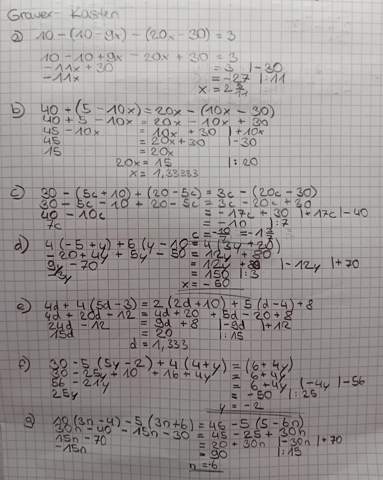 Grauer-Kasten
a) 10 - (10 - 9x) - (20x - 30) = 3
10 - 10 + 9x - 20x + 30 = 3
-11x + 30 = 3 |-30
-11x = -27 |:11
x = 2 5/11
b) 40 + (5 - 10x) = 20x - (10x - 30)
40 + 5 - 10x = 20x - 10x + 30
45 - 10x = 10x + 30 |+10x
45 = 20x + 30 |-30
15 = 20x
20x = 15 |:20
x = 1,33333
c) 30 - (5c + 10) + (20 - 5c) = 3c - (20c - 30)
30 - 5c - 10 + 20 - 5c = 3c - 20c + 30
40 - 10c = -17c + 30 |+17c |-40
7c = -10 |:7
c = -10/7 = -1 3/7
d) 4 (-5 + y) + 5 (y - 10 = 4 (3y + 20)
-20 + 4y + 5y - 50 = 12y + 80
9y - 70 = 12y + 80 |-12y |+70
-3y = 150 :3
x = -50
e) 4d + 4 (5d - 3) = 2 (2d + 10) + 5 (d - 4) + 8
4d + 20d - 12 = 4d + 20 + 5d - 20 + 8
24d - 12 = 9d + 8 |-9d |+12
15d = 20 |:15
d = 1,333
f) 30 - 5 (5y - 2) + 4 (4 + y) = (6 + 4y)
30 - 25y + 10 + 16 + 4y = 6 + 4y
56 - 21y = 6 + 4y |-4y |-56
25y = -50 |:25
y = -2
g) 10 (3n - 4) - 5 (3n + 6) = 45 - 5 (5 - 6n)
30n - 40 - 15n - 30 = 45 - 25 + 30n
15n - 70 = 20 + 30n |-30n |+70
-15n = 90 |:15
n = -6